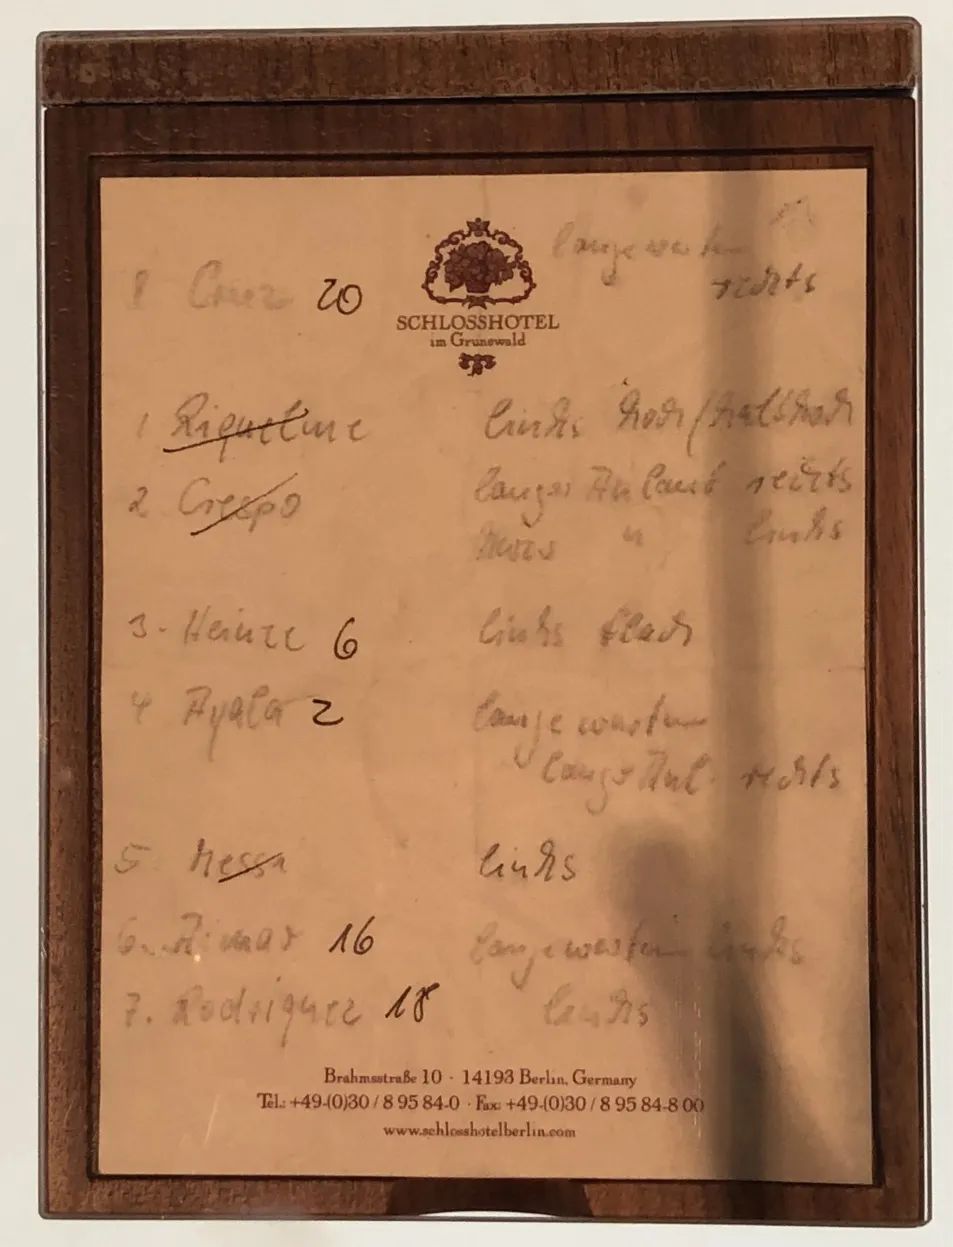 lange warten
8 Cruz 20 rechts
SCHLOSSHOTEL
im Grunewald
1 Riquelme links hoch/halbhoch
2 Crespo langer Anlauf rechts
" links
3. Heinze 6 links flach
4 Ayala 2 lange warten
langer Anl. rechts
5 Messi links
6. Aimar 16 lange warten links
7. Rodriguez 18 links
Brahmsstraße 10 · 14193 Berlin, Germany
Tel.: +49-(0)30 / 8 95 84-0 · Fax: +49-(0)30 / 8 95 84-8 00
www.schlosshotelberlin.com